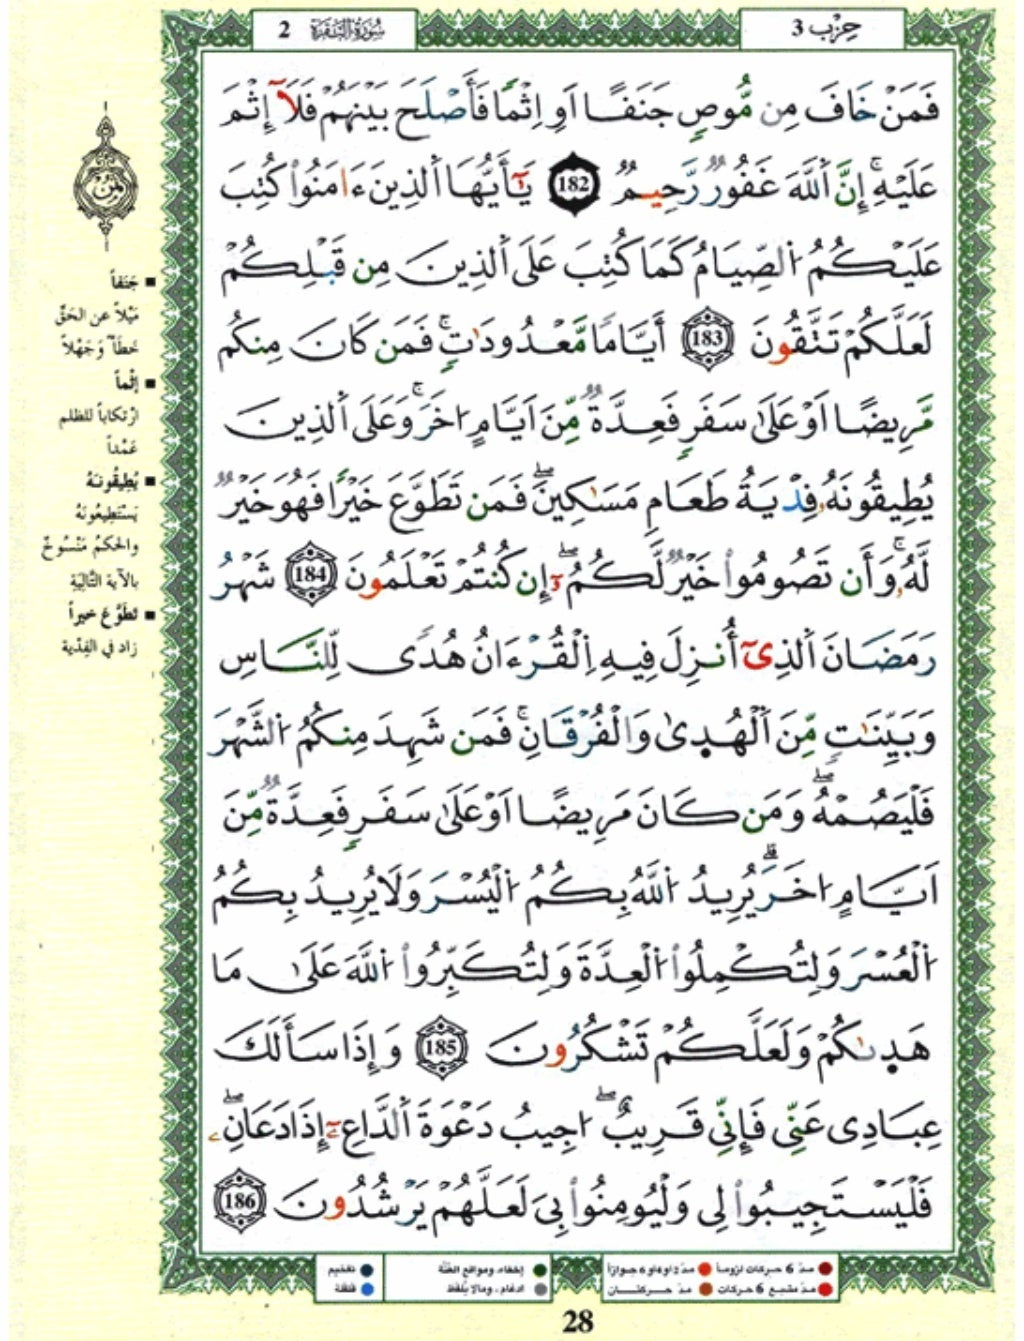 سُورَةُ البَقَرَة 2
حِزْب 3
فَمَنْ خَافَ مِن مُّوصٍ جَنَفًا اَوِ اِثْمًا فَأَصْلَحَ بَيْنَهُمْ فَلَآ إِثْمَ
عَلَيْهِۚ إِنَّ اَ۬للَّهَ غَفُورٌ رَّحِيمٌ 182 يَٰٓأَيُّهَا اَ۬لذِينَ ءَامَنُواْ كُتِبَ
عَلَيْكُمُ اُ۬لصِّيَامُ كَمَا كُتِبَ عَلَى اَ۬لذِينَ مِن قَبْلِكُمْ
لَعَلَّكُمْ تَتَّقُونَ 183 أَيَّامًا مَّعْدُودَٰتٍۚ فَمَن كَانَ مِنكُم
مَّرِيضًا اَوْ عَلَىٰ سَفَرٍ فَعِدَّةٌ مِّنَ اَيَّامٍ اُخَرَۚ وَعَلَى اَ۬لذِينَ
يُطِيقُونَهُۥ فِدْيَةُ طَعَامِ مَسَٰكِينَۖ فَمَن تَطَوَّعَ خَيْرًا فَهُوَ خَيْرٌ
لَّهُۥۚ وَأَن تَصُومُواْ خَيْرٌ لَّكُمُۥٓۖ إِن كُنتُمْ تَعْلَمُونَ 184 شَهْرُ
رَمَضَانَ اَ۬لذِىٓ أُنزِلَ فِيهِ اِ۬لْقُرْءَانُ هُدًى لِّلنَّاسِ
وَبَيِّنَٰتٍ مِّنَ اَ۬لْهُدٜىٰ وَالْفُرْقَانِۚ فَمَن شَهِدَ مِنكُمُ اُ۬لشَّهْرَ
فَلْيَصُمْهُۖ وَمَن كَانَ مَرِيضًا اَوْ عَلَىٰ سَفَرٍ فَعِدَّةٌ مِّنَ
اَيَّامٍ اُخَرَۗ يُرِيدُ اُ۬للَّهُ بِكُمُ اُ۬لْيُسْرَ وَلَا يُرِيدُ بِكُمُ
اُ۬لْعُسْرَ وَلِتُكْمِلُواْ اُ۬لْعِدَّةَ وَلِتُكَبِّرُواْ اُ۬للَّهَ عَلَىٰ مَا
هَدٜىٰكُمْ وَلَعَلَّكُمْ تَشْكُرُونَ 185 وَإِذَا سَأَلَكَ
عِبَادِى عَنِّى فَإِنِّى قَرِيبٌۖ اُجِيبُ دَعْوَةَ اَ۬لدَّاعِۦٓ إِذَا دَعَانِۦۖ
فَلْيَسْتَجِيبُواْ لِى وَلْيُومِنُواْ بِىَ لَعَلَّهُمْ يَرْشُدُونَ 186
جَنَفاً
مَيْلاً عن الحَقِّ
خَطَأً وَجَهْلاً
إثْماً
ارْتكاباً للظلم
عَمْداً
يُطِيقُونَهُ
يَسْتَطِيعُونَهُ
والحكمُ مَنْسُوخٌ
بالآية التَّالِيَةِ
تَطَوَّعَ خيراً
زاد في الفِدْية
مدّ 6 حركات لزوماً
مدّ 2 او 4 او 6 جوازاً
إخفاء، ومواقع الغُنّة
تفخيم
مدّ مشبع 6 حركات
مدّ حركتان
ادغام، ومالا يُلفظ
قلقلة
28